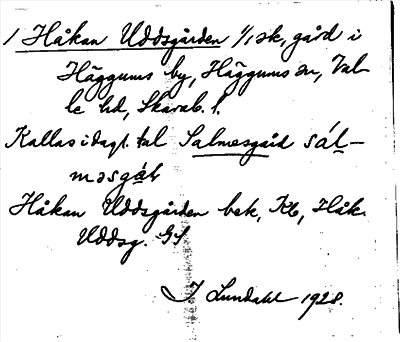 1 Håkan Uddsgården 1/1 sk, gård i
Häggums by, Häggums sn, Val-
le hd, Skarab. l.
Kallas i dagl. tal Salmesgård sál-
məsgaʹɽ
Håkan Uddsgården bek, Kb, Håk.
Uddsg. GS
J Lundahl 1928.